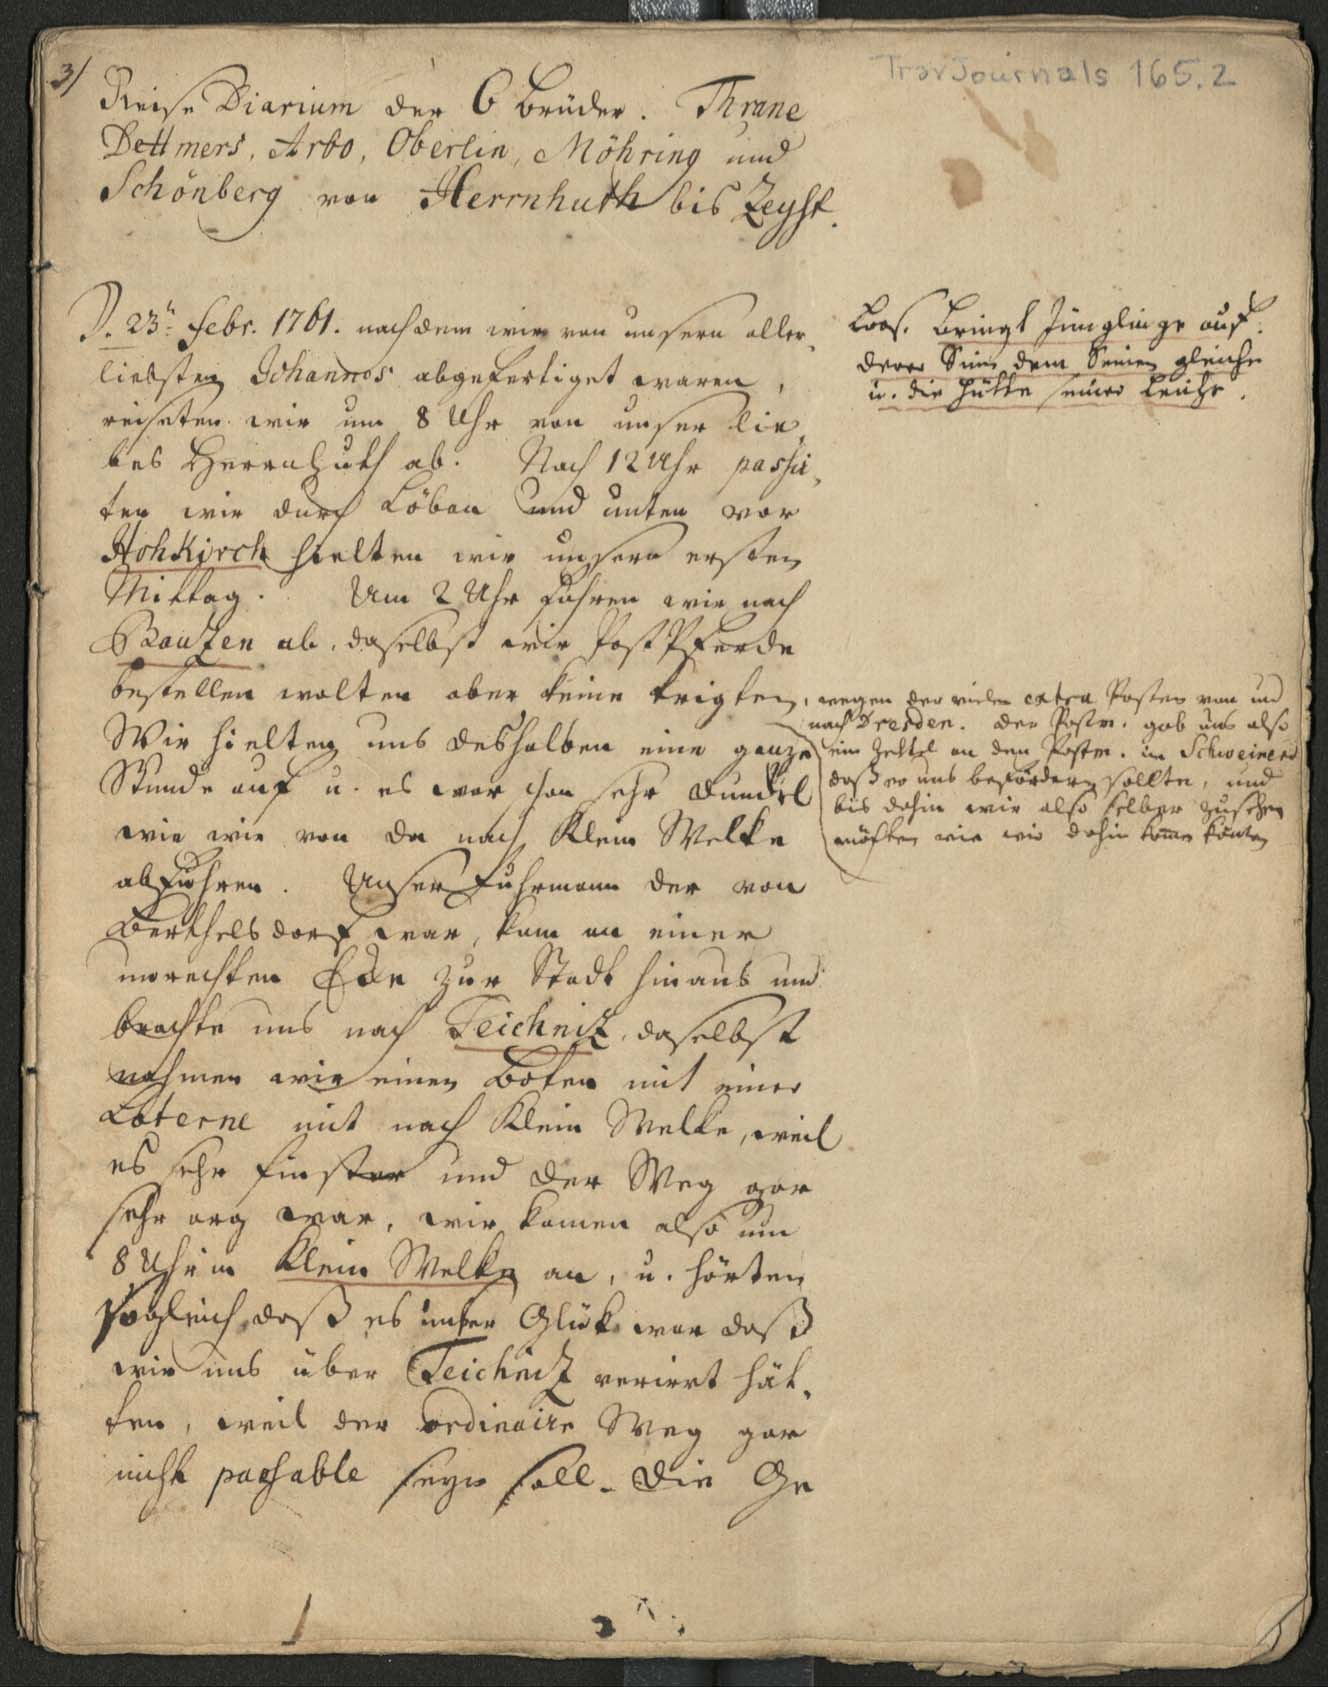 3/
TravJournals 165.2
Reise Diarium der 6 Brüder. Thrane
Dettmers, Arbo, Oberlin, Möhring und
Schönberg von Herrnhuth bis Zeyst.
D. 23n. Febr. 1761. nachdem wir von unsern aller-
liebsten Johannes abgefertiget waren,
reiseten wir um 8 Uhr von unser lie-
bes Herrnhuth ab. Nach 12 Uhr passir-
ten wir durch Löbau und unten vor
Hohkirch hielten wir unsern ersten
Mittag. Um 2 Uhr fuhren wir nach
Bautzen ab, daselbst wir Post Pferde
bestellen wolten aber keine krigten,
Wir hielten uns deshalben eine ganze
Stunde auf u. es war schon sehr dunckel
wie wir von da nach Klein Welke
abfuhren. Unser Fuhrmann der von
Berthelsdorf war, kam an einer
unrechten Ecke zur Stadt hinaus und
brachte uns nach Teichniz, daselbst
nahmen wir einen Boten mit einer
Laterne mit nach Klein Welke, weil
es sehr finster und der Weg gar
sehr arg war, wir kamen also um
8 Uhr in Klein Welke an, u. hörten
sogleich, daß es unser Glück war daß
wir uns über Teichniz verirrt hät-
ten, weil der ordinaire Weg gar
nicht passable seyn soll. Die Ge
Loos. Bringt Jünglinge auf.
derer Sinn dem Seinen gleiche
u. die Hütte seiner Leiche.
wegen der vielen extra Posten von und
nach Dresden. Der Postm. gab uns also
ein Zettel an den Postm. in Schweinerd
daß er uns befördern sollte, und
bis dahin wir also selber zusehen
müsten wie wir dahin kommen könten
1